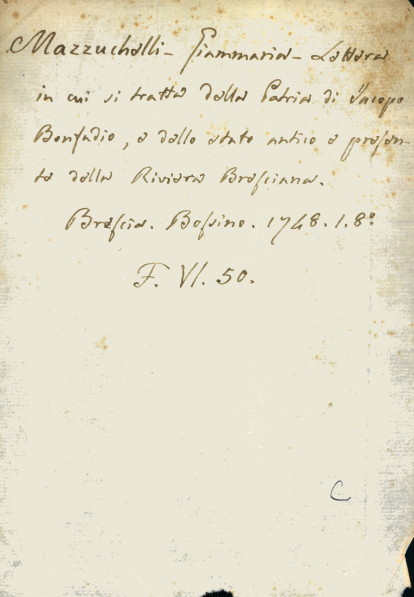 Mazzuchelli - Giammaria - Lettera
in cui si tratta della Patria di Jacopo
Bonfadio, e dello stato antico e presen-
te della Riviera Bresciana.
Brescia. Bossino. 1748. 1. 8º
F. VI. 50.
C